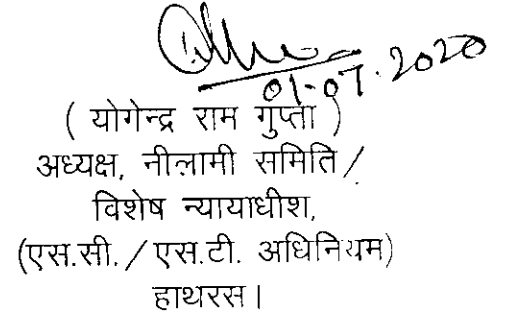 01-07.2020
( योगेन्द्र राम गुप्ता )
अध्यक्ष, नीलामी समिति/
विशेष न्यायाधीश,
(एस.सी./एस.टी. अधिनियम)
हाथरस।